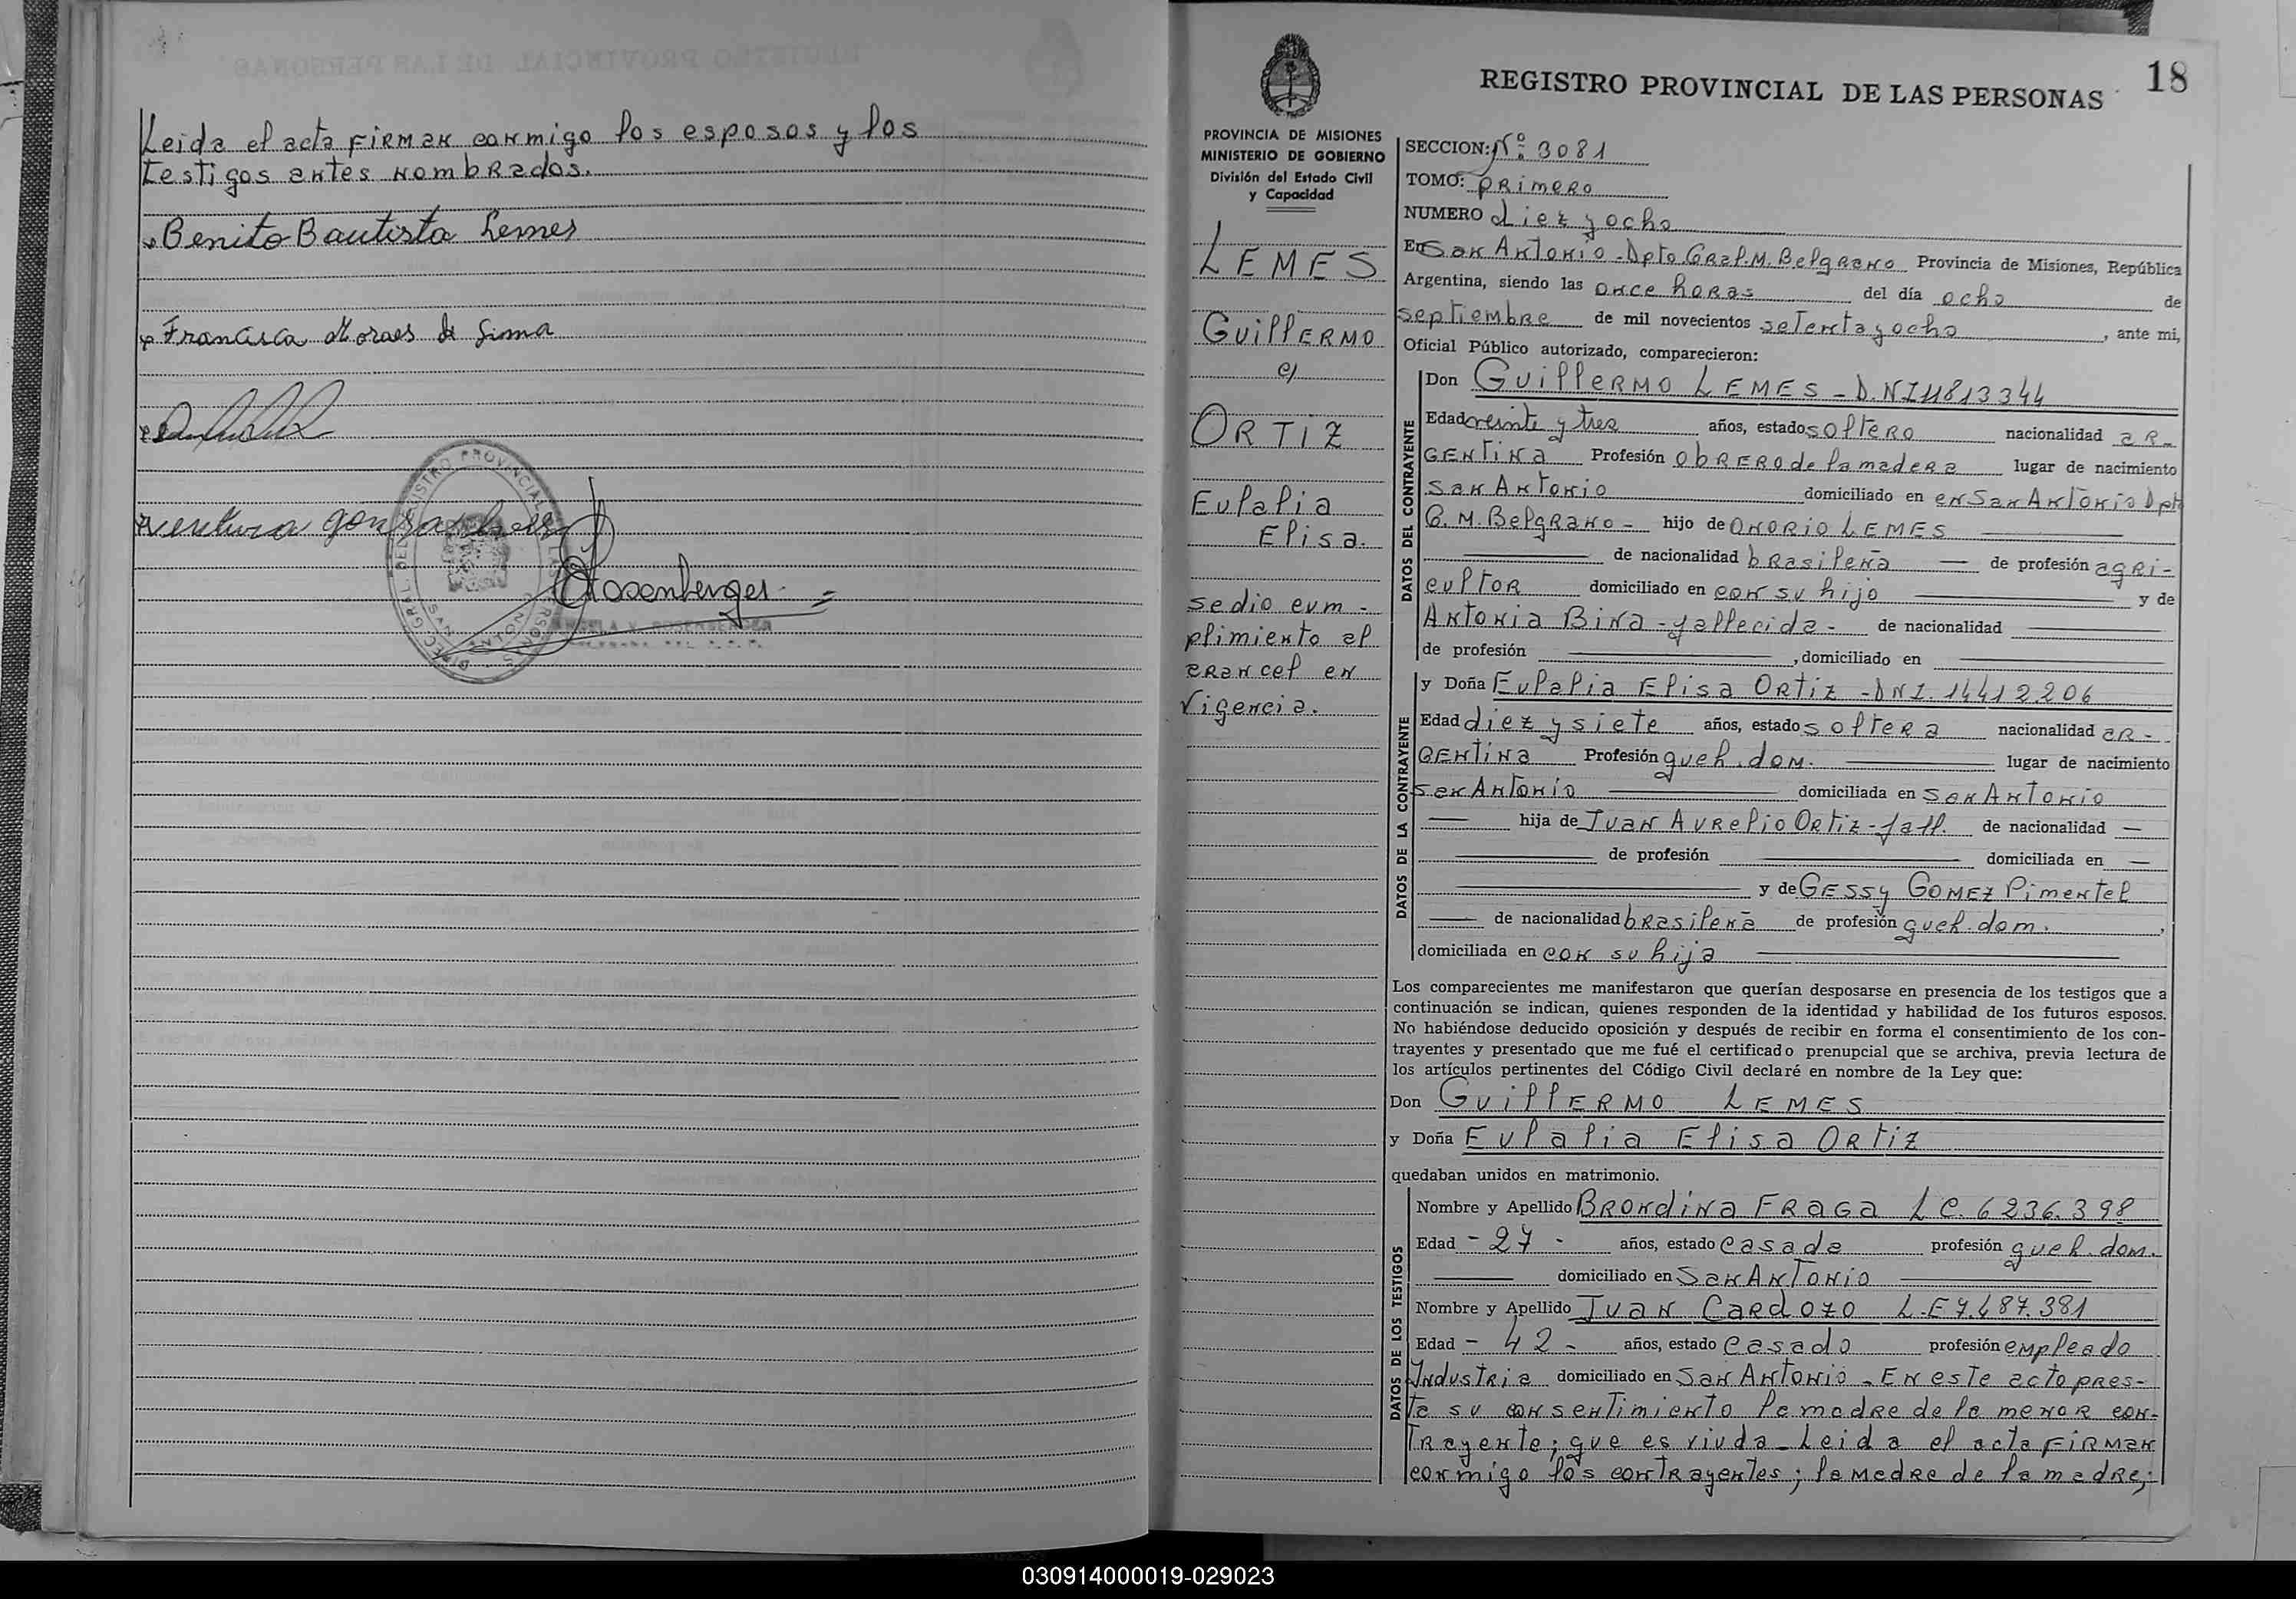 Leida el acta FiRMaN conmigo los esposos y los
testigos antes nombrados.
Benito Bautista Lemes
Francisca Moraes de Lima
ventura
Rosenberger
REGISTRO PROVINCIAL DE LAS PERSONAS
18
PROVINCIA DE MISIONES
MINISTERIO DE GOBIERNO
División del Estado Civil
y Capacidad
LEMES
GuillERMO
c/
ORTIZ
Eulalia
Elisa.
se dio cum-
plimiento al
arancel en
vigencia.
SECCION: Nº 3081
TOMO: primero
NUMERO diez y ocho
En San Antonio - Dpto Gral. M. Belgrano Provincia de Misiones, República
Argentina, siendo las once horas del día ocho de
septiembre de mil novecientos setenta y ocho, ante mi,
Oficial Público autorizado, comparecieron:
DATOS DEL CONTRAYENTE
Don GuillERMO LEMES - D.N.I 11813344
Edad veinte y tres años, estado soltero nacionalidad ar-
gentina Profesión obrero de la madera lugar de nacimiento
San Antonio domiciliado en en San Antonio Dpto
G. M. Belgrano - hijo de ONORIO LEMES
de nacionalidad brasileña de profesión agri-
cultor domiciliado en con su hijo y de
Antonia Bina - fallecida - de nacionalidad
de profesión , domiciliado en
DATOS DE LA CONTRAYENTE
y Doña Eulalia Elisa Ortiz - DNI. 14412.206
Edad diez y siete años, estado soltera nacionalidad ar-
gentina Profesión queh. dom. lugar de nacimiento
San Antonio domiciliada en San Antonio
hija de Juan Aurelio Ortiz - fall. de nacionalidad
de profesión domiciliada en
y de Gessy Gomez Pimentel
de nacionalidad brasileña de profesión queh. dom. ,
domiciliada en con su hija
Los comparecientes me manifestaron que querían desposarse en presencia de los testigos que a
continuación se indican, quienes responden de la identidad y habilidad de los futuros esposos.
No habiéndose deducido oposición y después de recibir en forma el consentimiento de los con-
trayentes y presentado que me fué el certificado prenupcial que se archiva, previa lectura de
los artículos pertinentes del Código Civil declaré en nombre de la Ley que:
Don GuillERMO LEMES
y Doña Eulalia Elisa Ortiz
quedaban unidos en matrimonio.
DATOS DE LOS TESTIGOS
Nombre y Apellido Brondina Fraga L C. 6236.398
Edad - 27 - años, estado casada profesión queh. dom.
domiciliado en San Antonio
Nombre y Apellido Juan Cardozo L.E 7.487.381
Edad - 42 - años, estado casado profesión empleado
Industria domiciliado en San Antonio - En este acto pres-
ta su consentimiento la madre de la menor con-
trayente; que es viuda - Leida el acta FiRMan
conmigo los contrayentes; la madre de la madre;
030914000019-029023